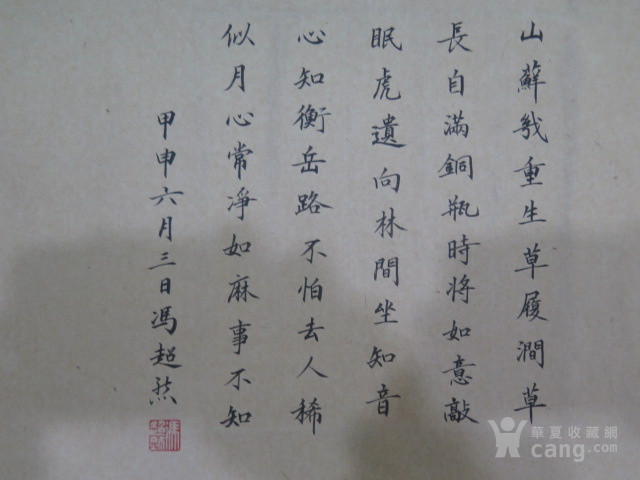 山蘚幾重生草履澗草
長自滿銅瓶時將如意敲
眠虎遺向林間坐知音
心知衡岳路不怕去人稀
似月心常淨如麻事不知
甲申六月三日馮超然
華夏收藏網
cang.com